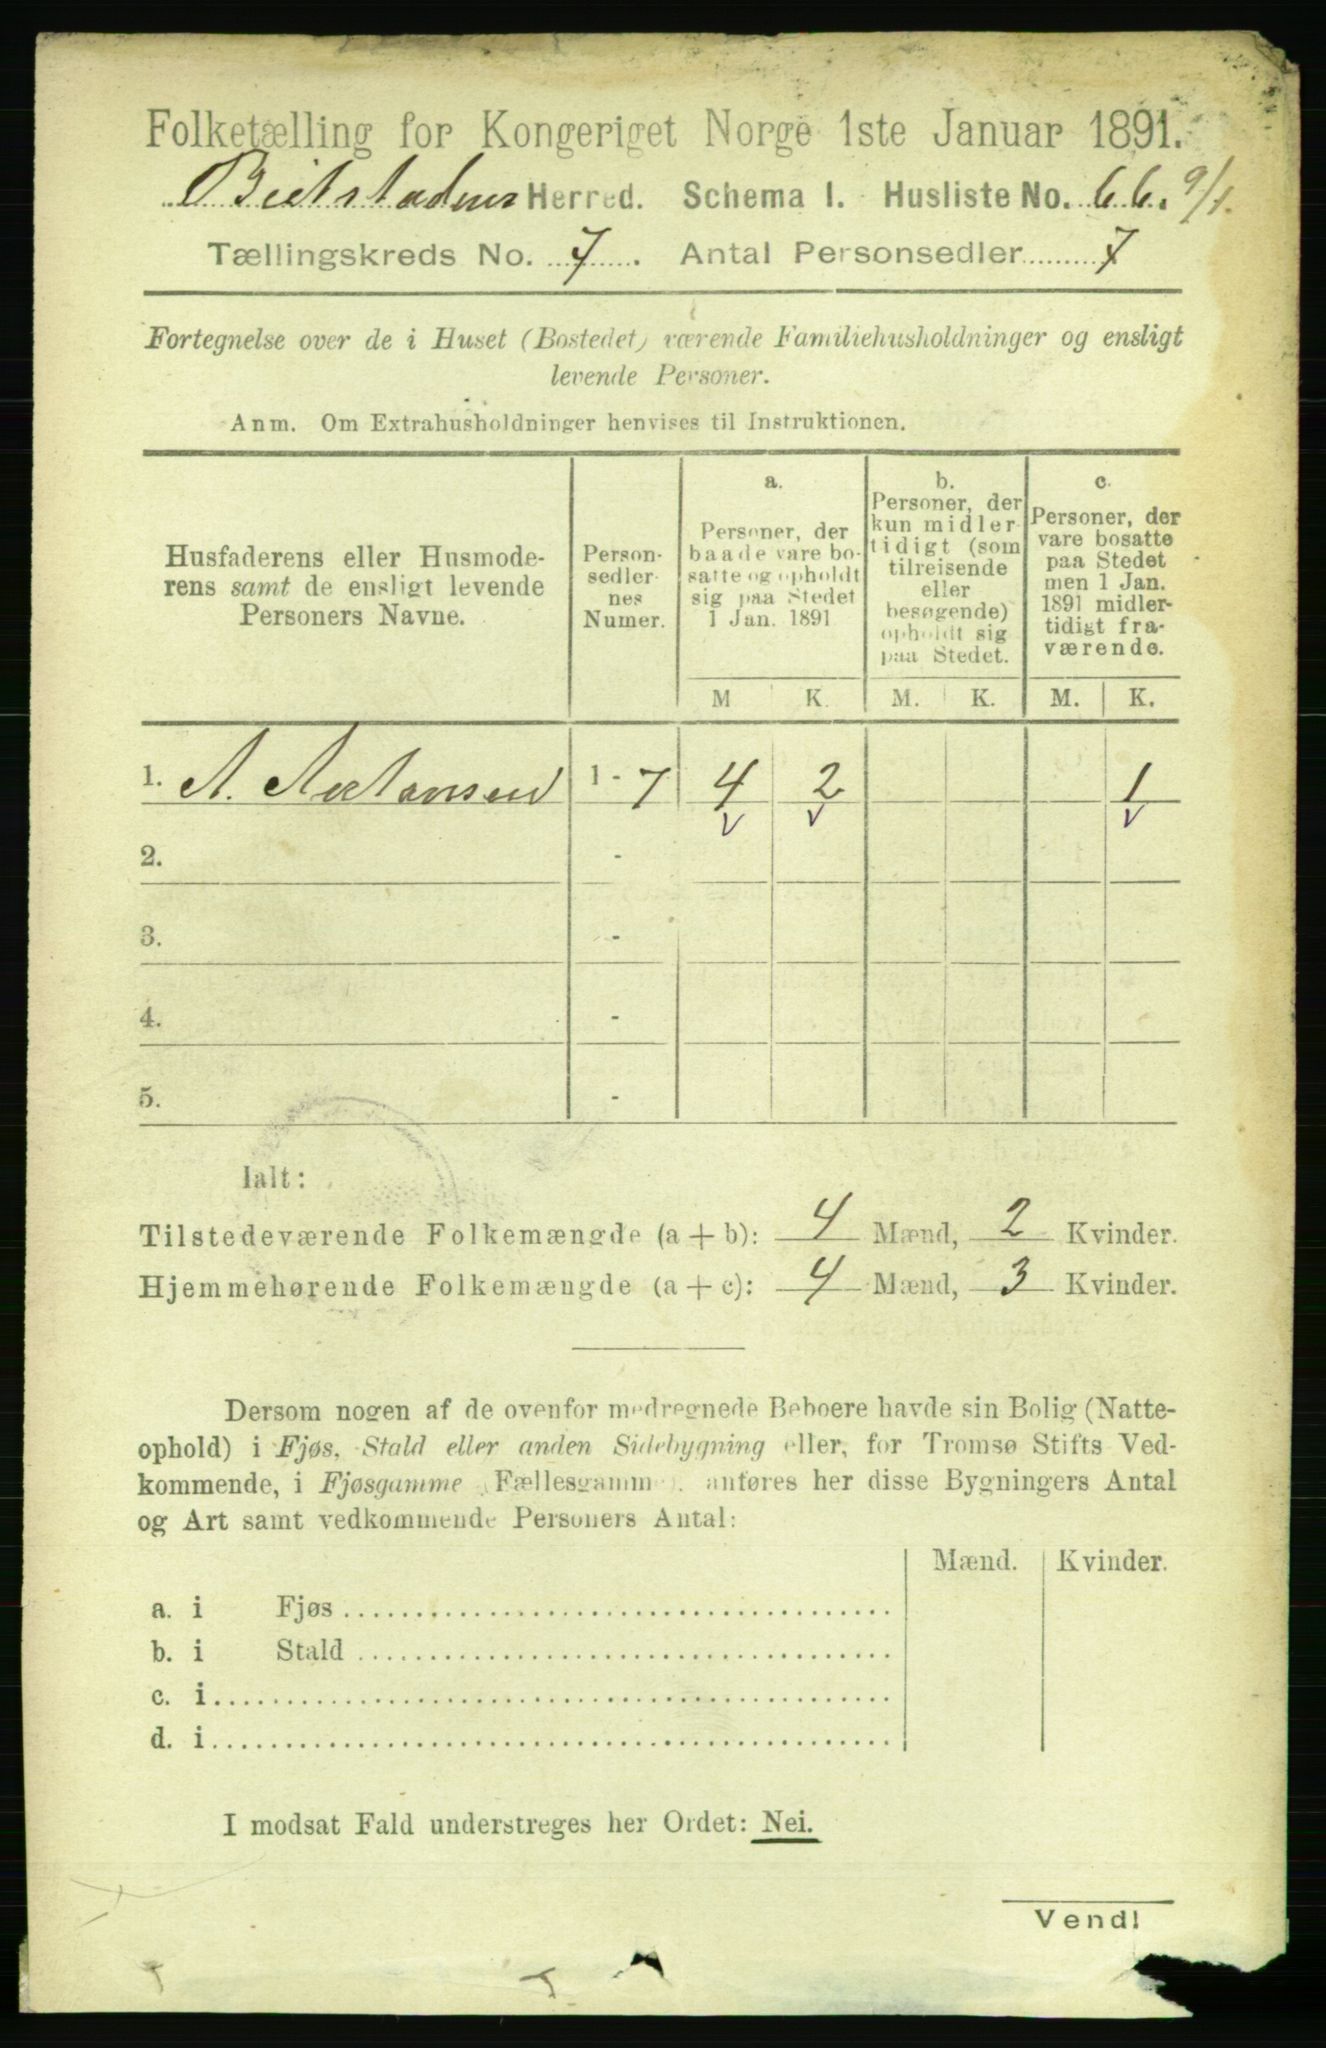 Folketælling for Kongeriget Norge 1ste Januar 1891.
Beitstadens Herred. Schema I. Husliste No. 66. 9/1.
Tællingskreds No. 7. Antal Personsedler 7
Fortegnelse over de i Huset (Bostedet) værende Familiehusholdninger og ensligt
levende Personer.
Anm. Om Extrahusholdninger henvises til Instruktionen.
Husfaderens eller Husmode-
rens samt de ensligt levende
Personers Navne.
Person-
sedler-
nes
Numer.
a.
Personer, der
baade vare bo-
satte og opholdt
sig paa Stedet
1 Jan. 1891
b.
Personer, der
kun midler-
tidigt (som
tilreisende
eller
besøgende)
opholdt sig
paa Stedet.
c.
Personer, der
vare bosatte
paa Stedet
men 1 Jan.
1891 midler-
tidigt fra-
værende.
M K. M. K. M. K.
1. A. 1 - 7 4 2 1
2. -
3. -
4. -
5. -
Ialt:
Tilstedeværende Folkemængde (a + b): 4 Mænd, 2 Kvinder.
Hjemmehørende Folkemængde (a + c): 4 Mænd, 3 Kvinder.
Dersom nogen af de ovenfor medregnede Beboere havde sin Bolig (Natte-
ophold) i Fjøs, Stald eller anden Sidebygning eller, for Tromsø Stifts Ved-
kommende, i Fjøsgamme (Fællesgamme), anføres her disse Bygningers Antal
og Art samt vedkommende Personers Antal:
Mænd. Kvinder.
a. i Fjøs
b. i Stald
c. i
d. i
I modsat Fald understreges her Ordet: Nei.
Vend!